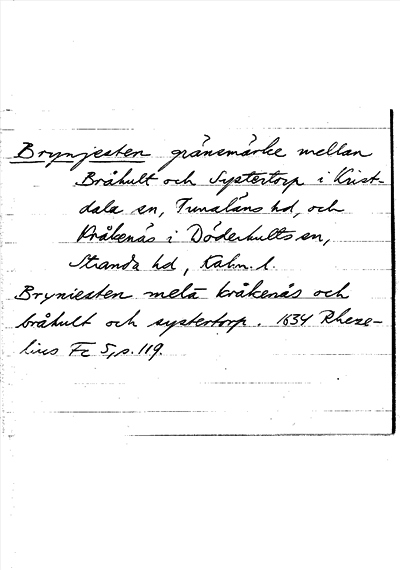 Brynjesten gränsmärke mellan
Bråhult och Systertorp i Krist-
dala sn, Tunaläns hd, och
Kråkenäs i Döderhults sn,
Stranda hd, Kalm. l.
Bryniesten melå kråkenäs och
bråhult och systertorp. 1634 Rheze-
lius Fc 5, s. 119.